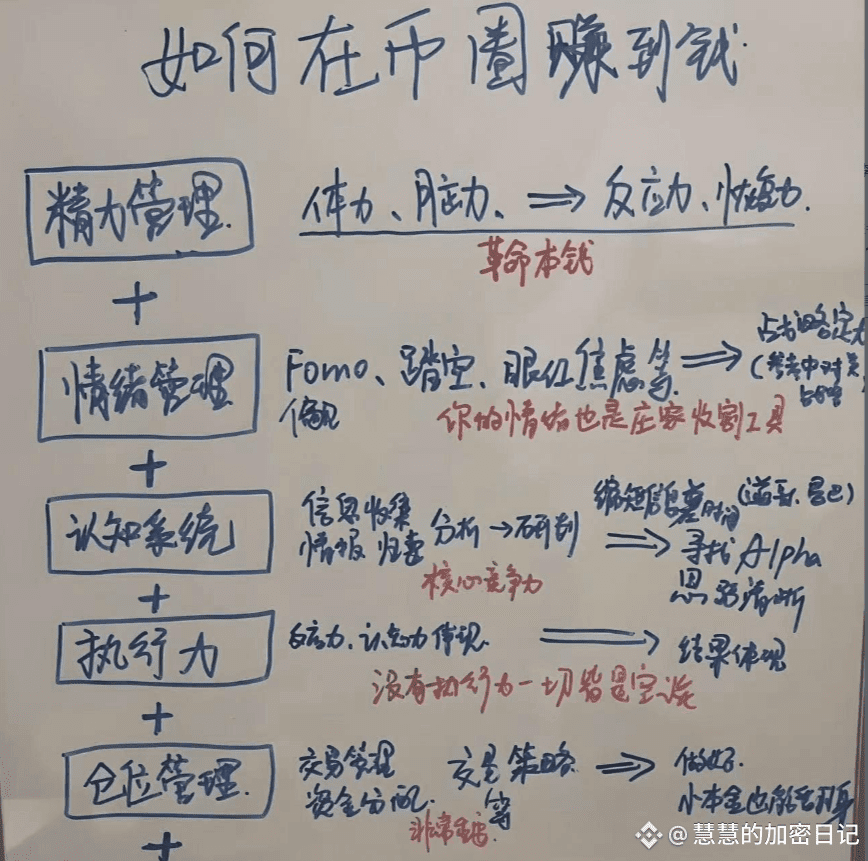 如何在币圈赚到钱
精力管理 体力、脑力、⇒ 反应力、恢复力.
革命本钱
+
情绪管理 Fomo、踏空、眼红焦虑等. ⇒
偏见 你的情绪也是庄家收割工具
+
认知系统 信息收集 分析→研判 ⇒ 缩短信息差时间
情报 归类 寻找Alpha
核心竞争力 思路清晰
+
执行力 反应力、认知力体现. ⇒ 结果体现
没有执行力一切皆是空谈
+
仓位管理 交易管理 交易策略 ⇒ 做好.
资金分配. 等 小本金也能
非常重要
+
@慧慧的加密日记